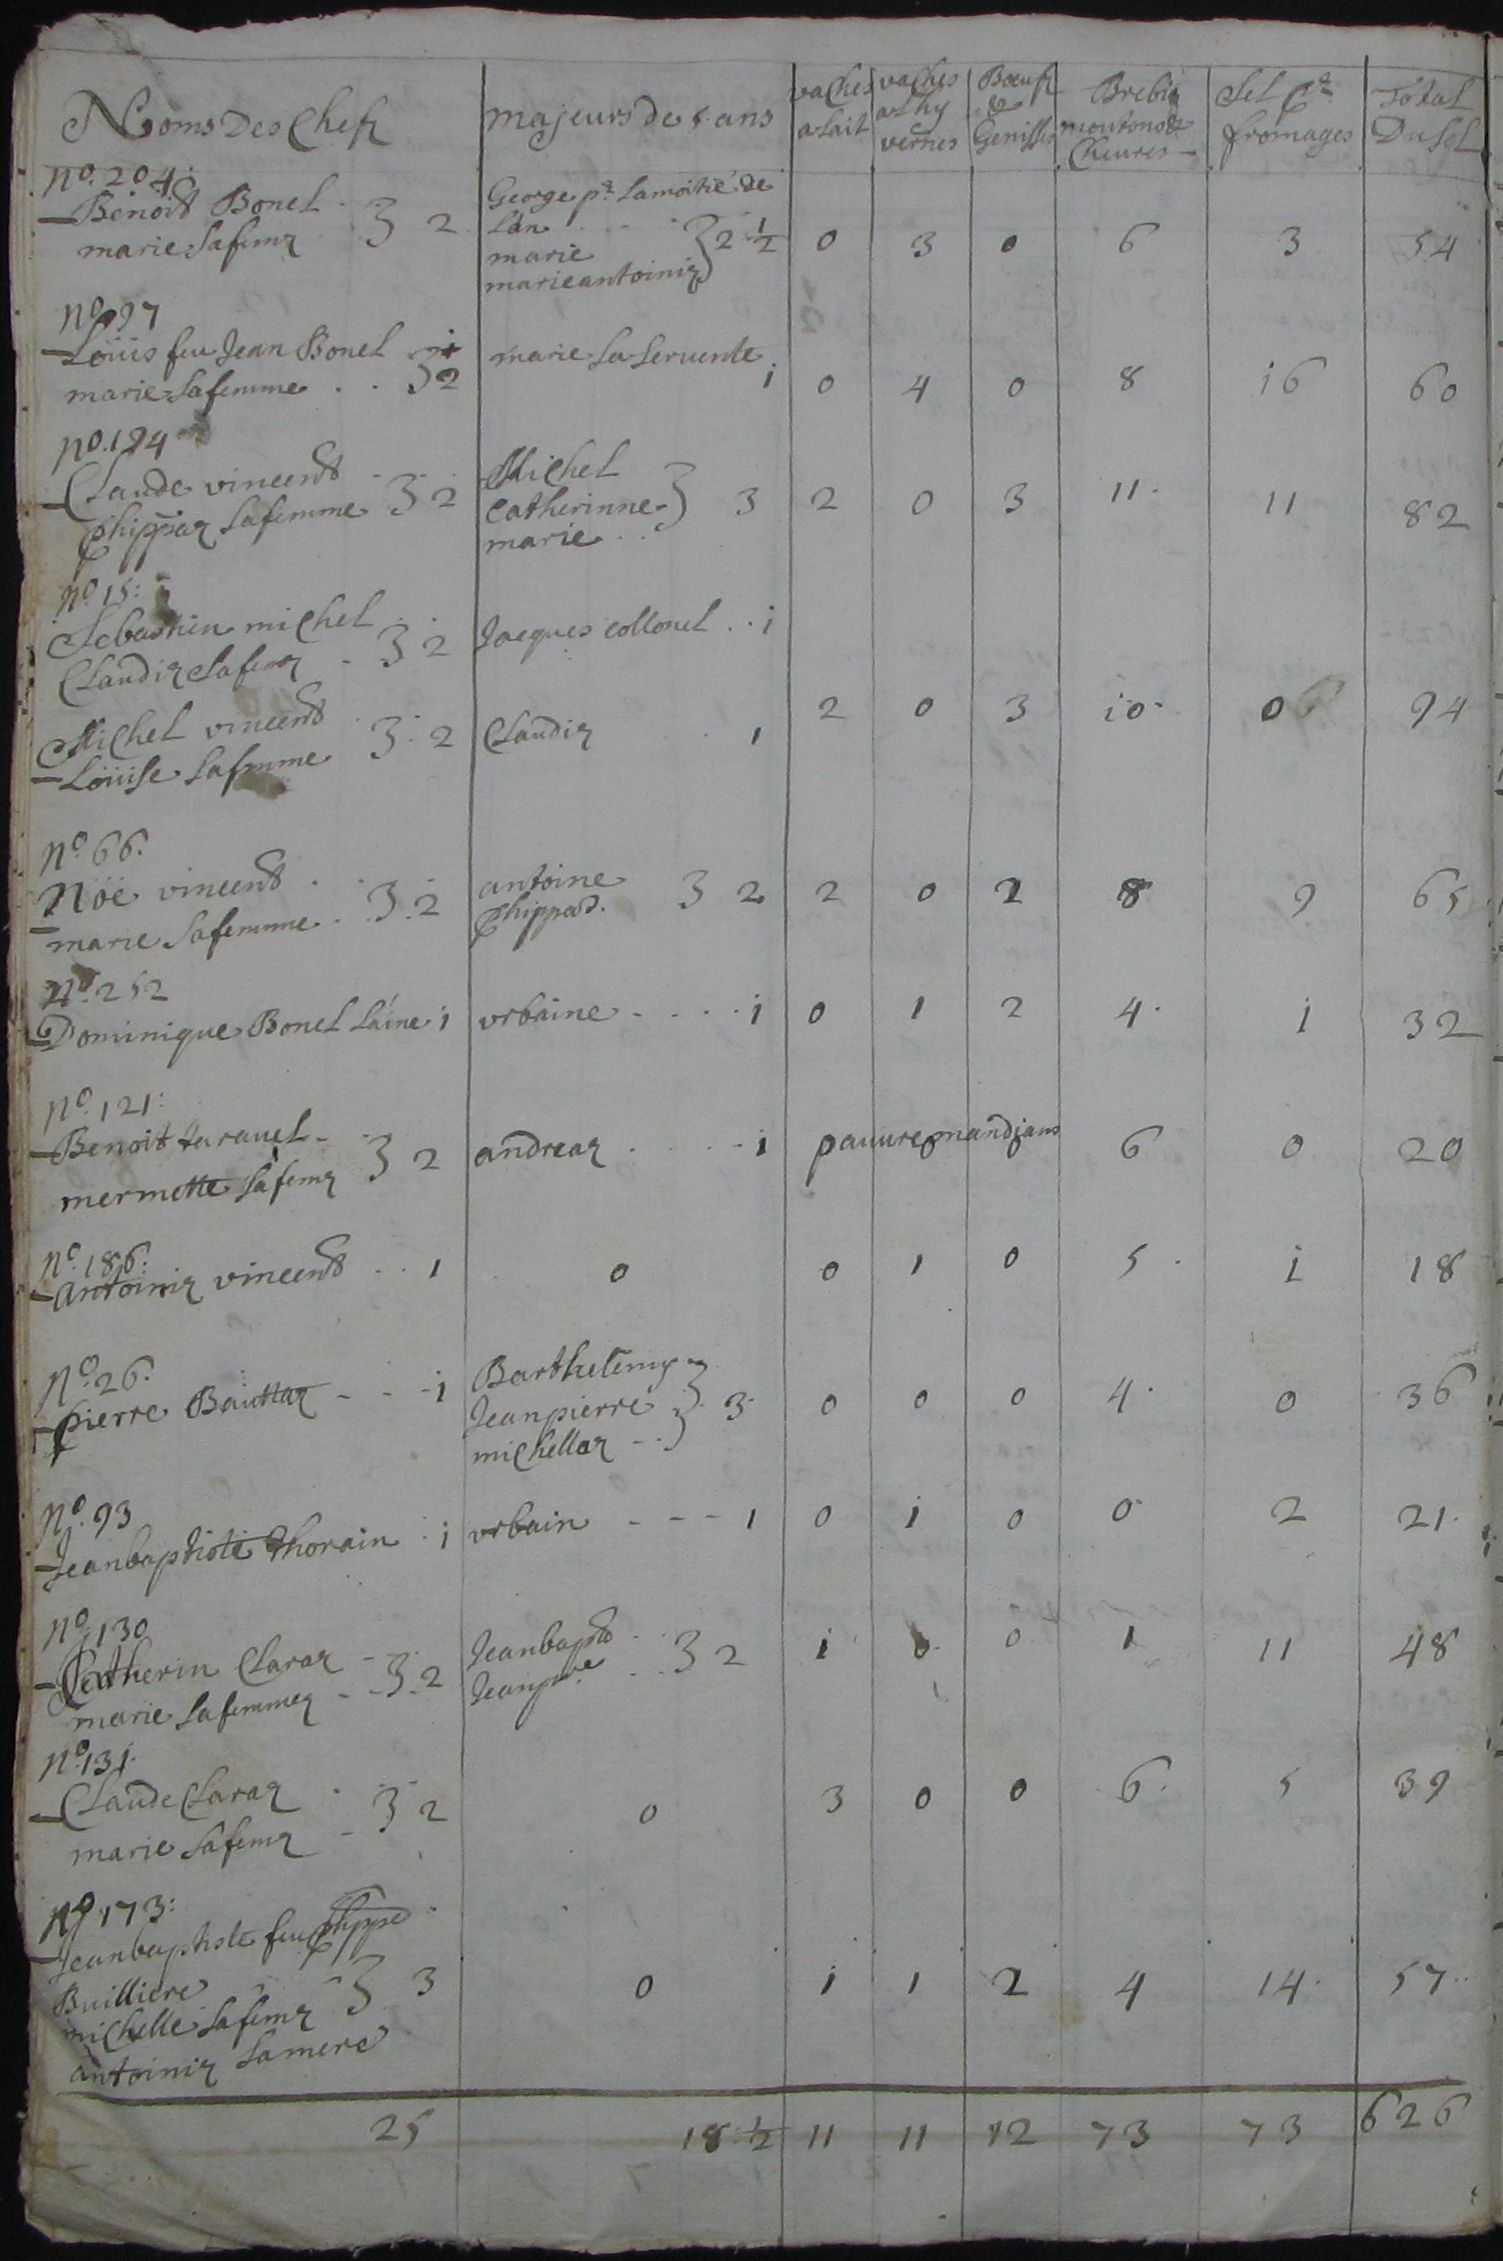 Noms Des Chefz | majeurs de 5 ans | vaches a lait | vaches a Lhy vernes | Bœufz & Genisses | Brebis moutons & Cheures | Sel p.r fromages | Total Du Sel
No. 204:
Benoit Bonel
marie Sa femz } 2 | George p.r La moitié de Lan marie marie antoiniz } 2 1/2 | 0 | 3 | 0 | 6 | 3 | 54
No 97
Loüis feu Jean Bonel
marie Sa femme . . } 2 | marie La Seruente 1 | 0 | 4 | 0 | 8 | 16 | 60
No. 194
Claude vincent
Phippaz Sa femme } 2 | Michel Catherinne marie . . } 3 | 2 | 0 | 3 | 11 | 11 | 82
No. 15:
Sebastien michel
Claudiz Sa femz } 2 | Jacques collonel . . 1
Michel vincent
Loüise Sa femme } 2 | Claudiz 1 | 2 | 0 | 3 | 10 | 06 | 94
No. 66.
Nöe vincent
marie Sa femme . } 2 | antoine Phippad. } 2 | 2 | 0 | 2 | 8 | 9 | 65
No. 252
Dominique Bonel L'aine 1 | vrbaine - . . . 1 | 0 | 1 | 2 | 4 | 1 | 32
No. 121:
Benoit tarauel
mermette Sa femz } 2 | andreaz . . . . 1 | pauure mandians | 6 | 0 | 20
No. 186:
Antoiniz vincent . . 1 | 0 | 0 | 1 | 0 | 5 | 1 | 18
No. 26.
pierre Bauttaz - - - 1 | Barthelemy Jean pierre michellaz } 3 | 0 | 0 | 0 | 4 | 0 | 36
No. 93
Jean baptiste thorain . 1 | vrbain - - - 1 | 0 | 1 | 0 | 0 | 2 | 21
No. 130
Catherin Claraz
marie Sa femmez } 2 | Jean bapt Jean pre . . } 2 | 1 | 0 | 0 | 1 | 11 | 48
No. 131.
Claude Claraz
marie Sa femz } 2 | 0 | 3 | 0 | 0 | 6 | 5 | 39
No 173:
Jean baptiste feu Phippe
Buillierd
michelle Sa femz } 3 | 0 | 1 | 1 | 2 | 4 | 14 | 57
antoiniz Sa mere
25 | 18 1/2 | 11 | 11 | 12 | 73 | 73 | 626